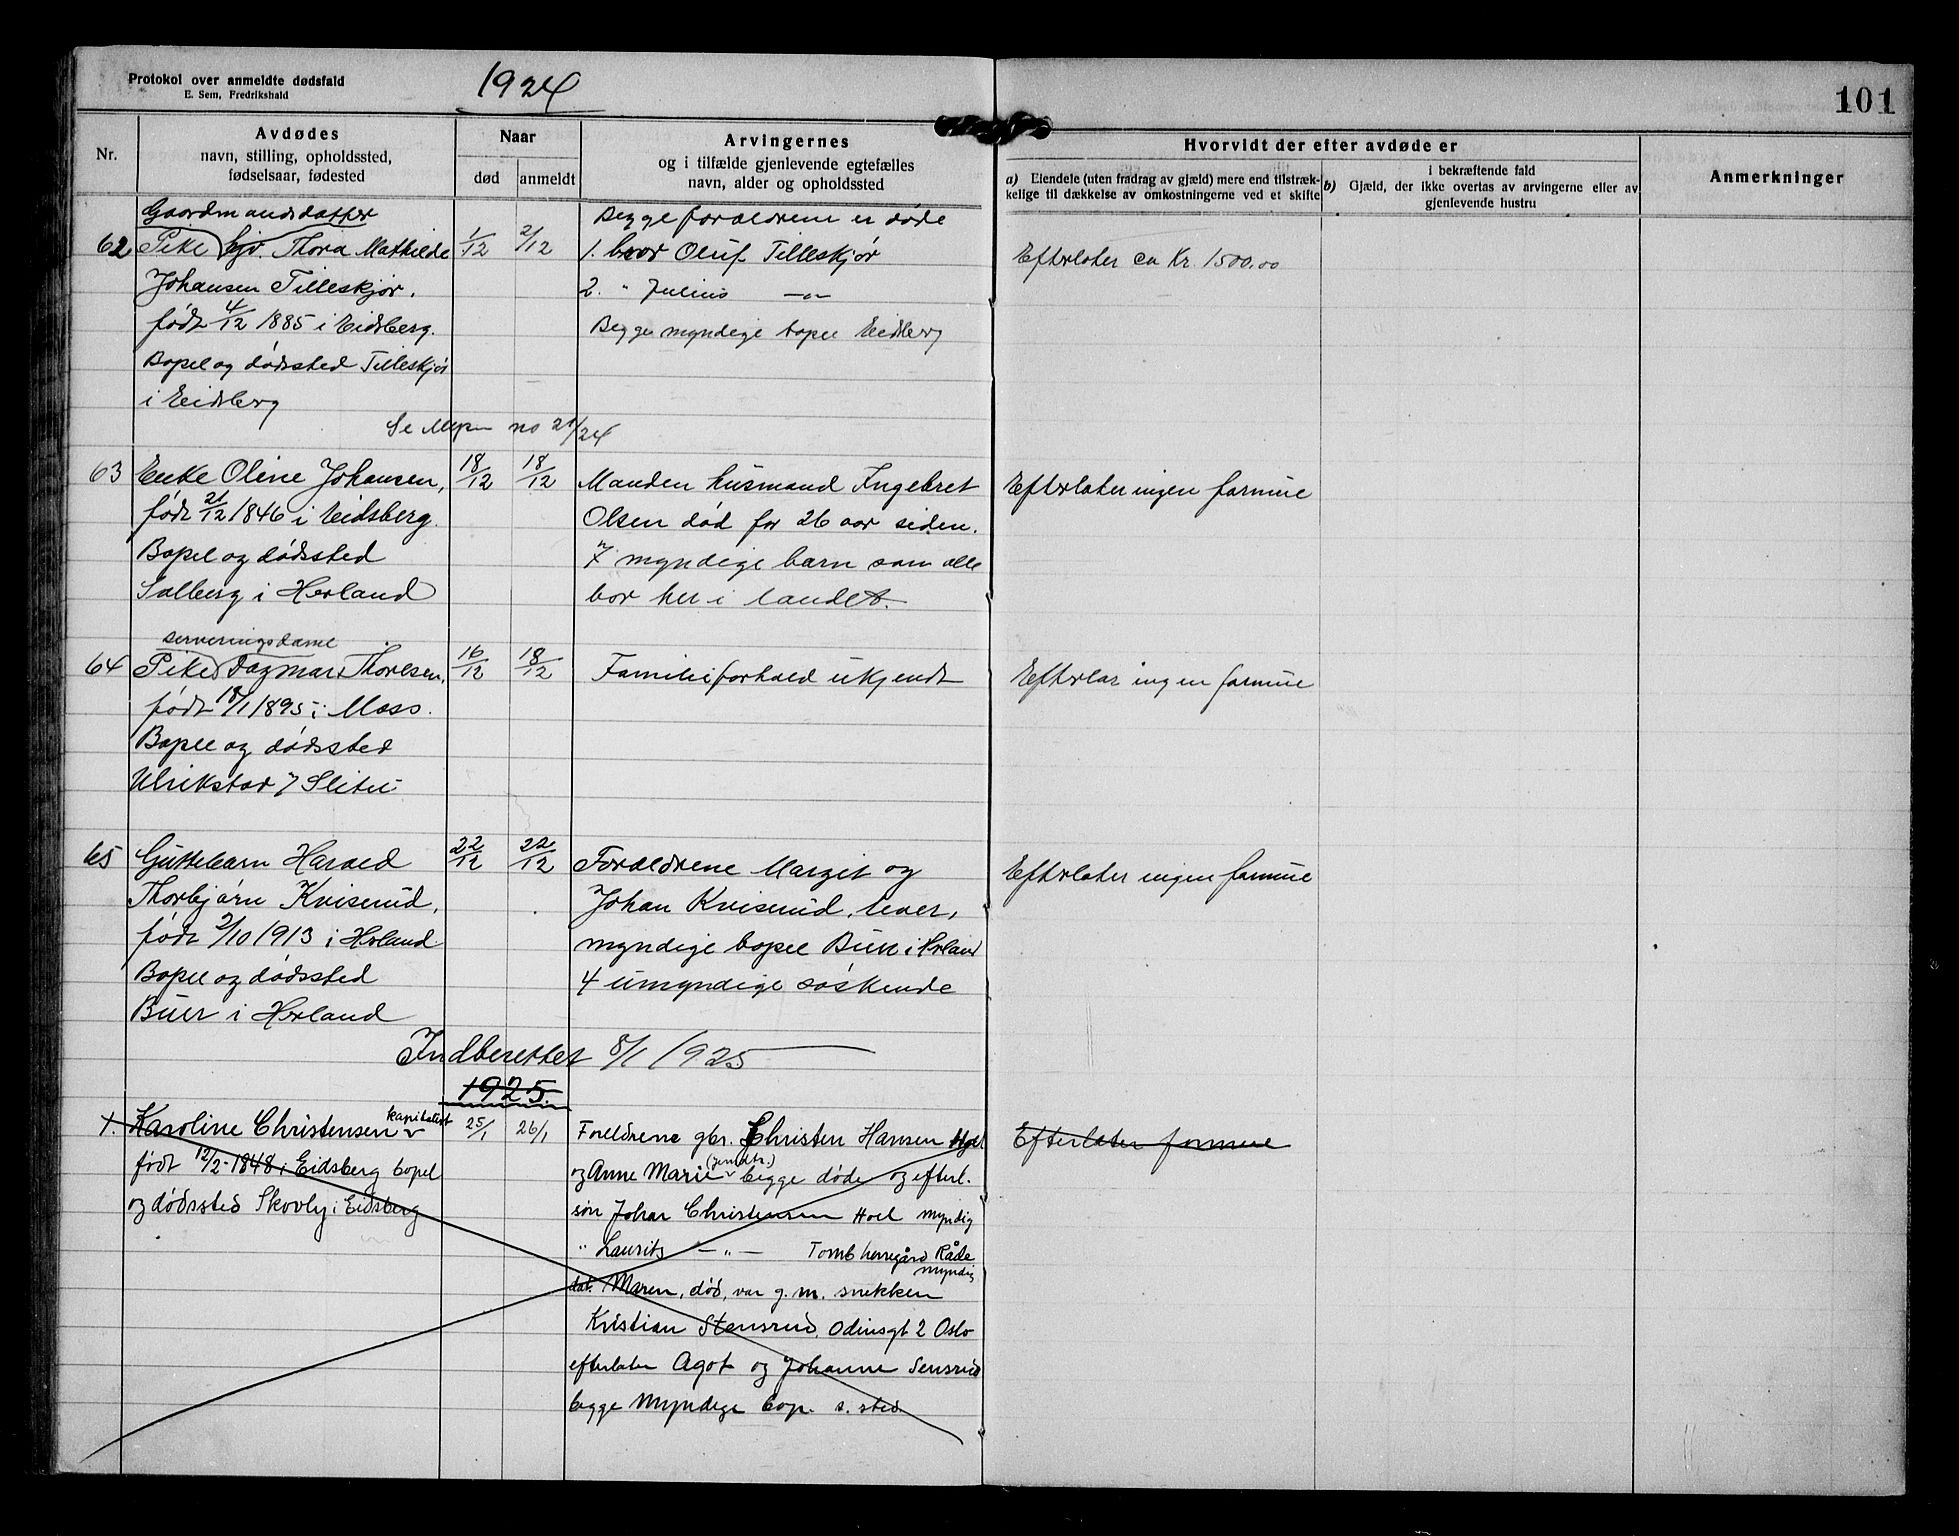 Protokol over anmeldte dødsfald
E. Sem, Fredrikshald
1924
101
Nr.
Avdødes
navn, stilling, opholdssted,
fødselsaar, fødested
Naar
død
anmeldt
Arvingernes
og i tilfælde gjenlevende egtefælles
navn, alder og opholdssted
Hvorvidt der efter avdøde er
a) Eiendele (uten fradrag av gjæld) mere end tilstræk-
kelige til dækkelse av omkostningerne ved et skifte
i bekræftende fald
b) Gjæld, der ikke overtas av arvingerne eller av
gjenlevende hustru
Anmerkninger
Gaardmandsdatter
62 Pike Thora Mathilde
Johansen Tilleskjør.
født 4/12 1885 i Eidsberg.
Bopel og dødssted Tilleskjør
i Eidsberg
1/12
2/12
Begge forældrene er døde
1. bror Oluf Tilleskjør
2. " Julius —"—
Begge myndige bopel Eidsberg
Efterlater ca Kr. 1500.00
Se no 21/24
63 Enke Oline Johansen,
født 21/12 1846 i Eidsberg.
Bopel og dødssted
Salberg i Herland
18/12
18/12
Manden husmand Ingebret
Olsen død for 26 aar siden.
7 myndige barn som alle
bor her i landet.
Efterlater ingen formue
serveringsdame
64 Pike Dagmar Thoresen,
født 18/1 1895 i Moss.
Bopel og dødssted
Ulrikstad i Slitu
16/12
18/12
Familieforhold ukjendt
Efterlar ingen formue
65 Guttebarn Harald
Thorbjørn Kviserud,
født 2/10 1913 i Herland
Bopel og dødssted
Buer i Herland
22/12
22/12
Forældrene Margit og
Johan Kviserud, lever,
myndige bopel Buer i Herland
4 umyndige søskende
Efterlater ingen formue
Indberettet 8/1 1925
1925.
1. Karoline Christensen kapitalist
født 12/2-1848 i Eidsberg bopel
og dødssted Skovly i Eidsberg
25/1
26/1
Foreldrene gbr. Christen Hansen Hoel
og Anne Marie begge døde og efterl.
søn Johan Christensen Hoel myndig
" Laurits —"— Tomb herregård Råde
myndig
dat. Maren, død, var g. m. snekker
Kristian Stensrud, Odinsgt 2 Oslo
efterlater Agot og Johanne Sensrud
begge myndige bop. s. sted.
Efterlater formue